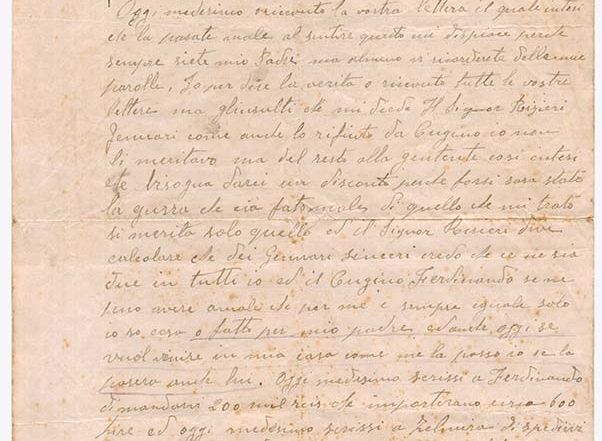 Oggi medesimo ricevuto la vostra lettera il quale intesi
che la pasate male al sentire questo mi dispiace perche
sempre siete mio Padre ma almeno vi ricorderete delle mie
parolle. Io per dire la verita o ricevuto tutte le vostre
lettere ma gl'insulti che mi diede Il Signor Risieri
Gennari come anche lo rifiuto da Cugino io non
li meritavo ma del resto alla gente cosi intesi
che bisogna darci un disconto perche forsi sara stato
la guerra che cia fato male di quello che mi trato
si merita solo quello ed il Signor Risieri deve
calcolare che dei Gennari sinceri credo che ce ne sia
due in tutti io ed il Cugino Ferdinando se ne
puo avere a male che per me è sempre eguale solo
io so cosa o fatto per mio padre ed anche oggi se
vuol venire in mia casa come me la passo io se la
passera anche lui. Oggi medesimo scrissi a Ferdinando
di mandarvi 200 mil reis che importerano circa 600
lire ed oggi medesimo scrissi a Zelmira di spedirvi